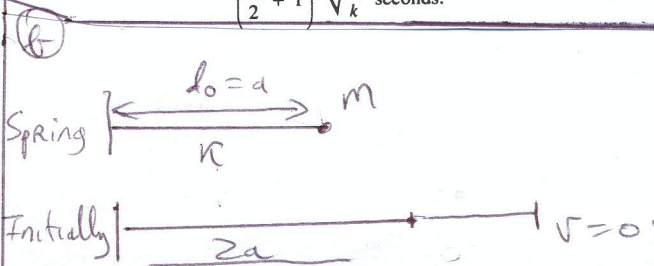 2 + 1 √ k seconds.
b
l₀ = a
m
Spring
K
Initially
2a
v = 0